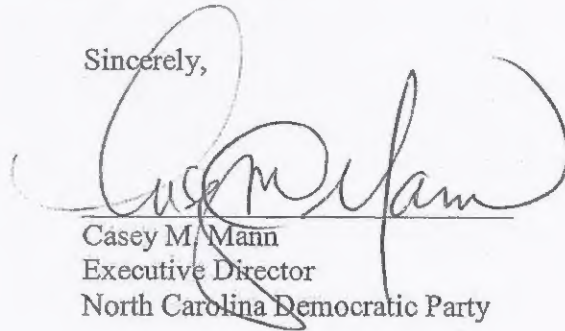 Sincerely,
Casey M Mann
Casey M. Mann
Executive Director
North Carolina Democratic Party